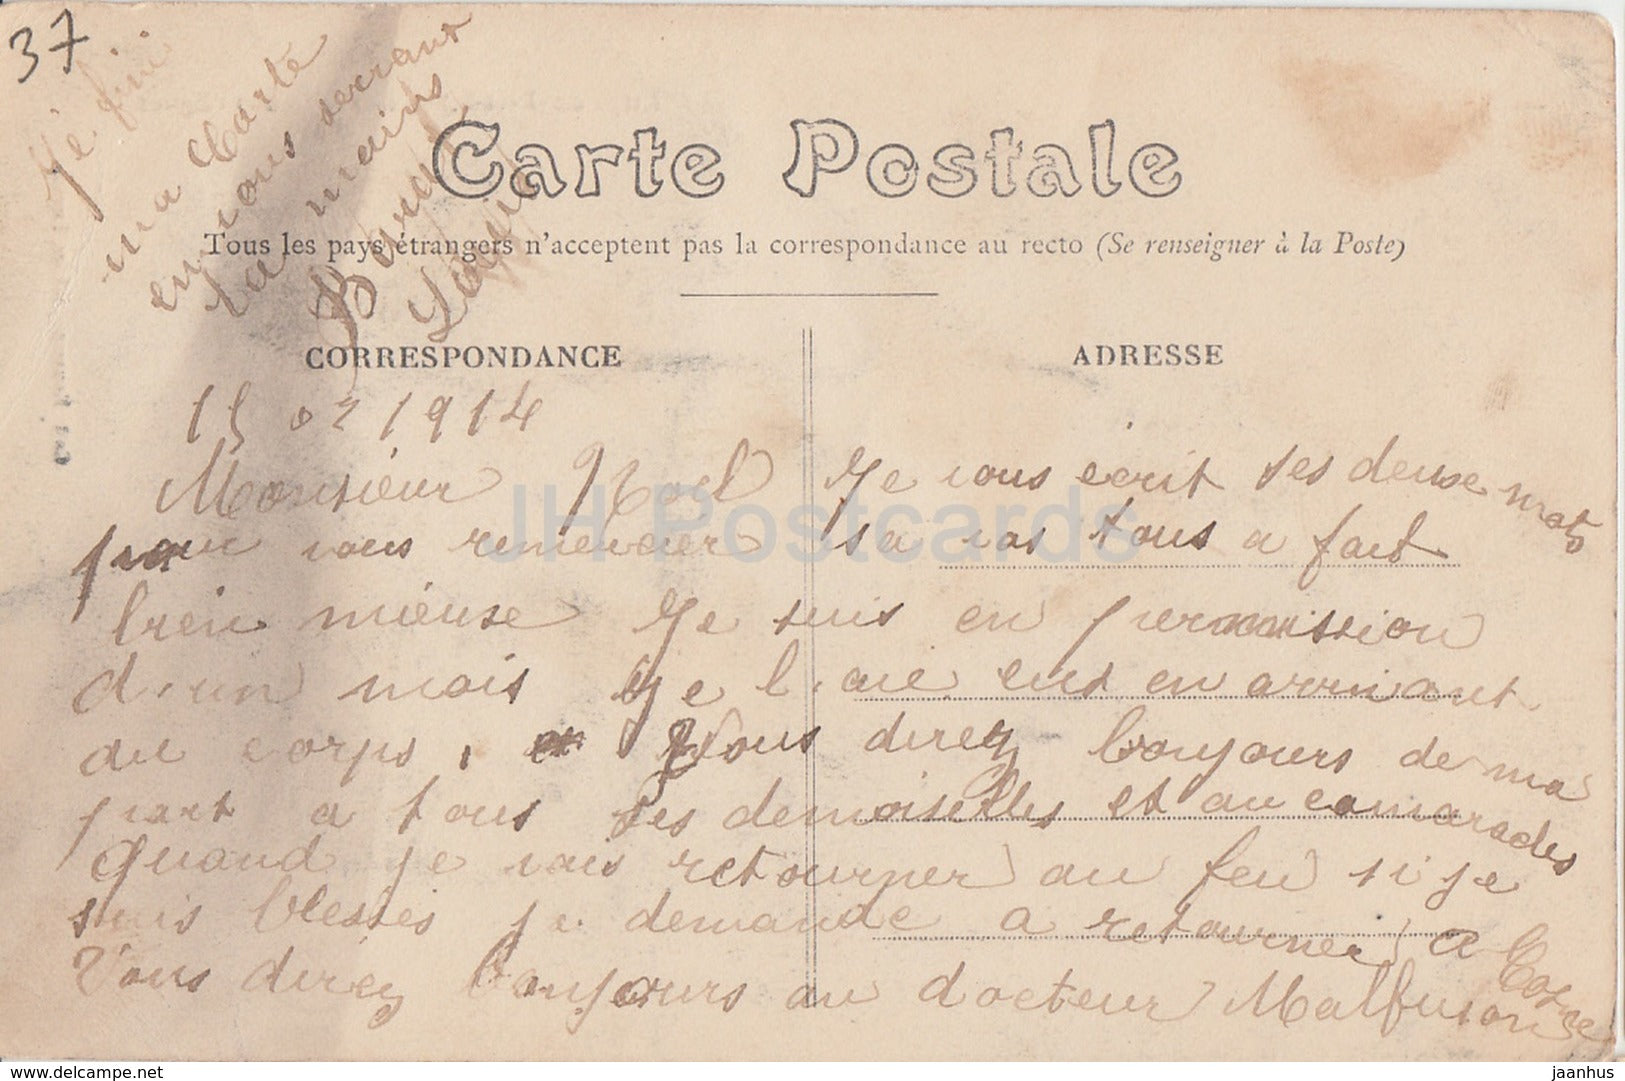 37
Je fini
ma Carte
en vous serrant
la mains
Carte Postale
Tous les pays étrangers n'acceptent pas la correspondance au recto (Se renseigner à la Poste)
CORRESPONDANCE
ADRESSE
1914
Monsieur Noel Je vous écrit ses deuse mots
pour vous remercier sa vas tous a fait
bien mieuse Je suis en permission
d'un mois Je l'aie eut en arrivant
au corps, Vous direz bonjours de ma
part a tous ses demoiselles et au camarades
Quand je vais retourner au feu si je
suis blessés je demande a retourner a
Vous direz bonjours au docteur
JH Postcards
www.delcampe.net
jaanhus